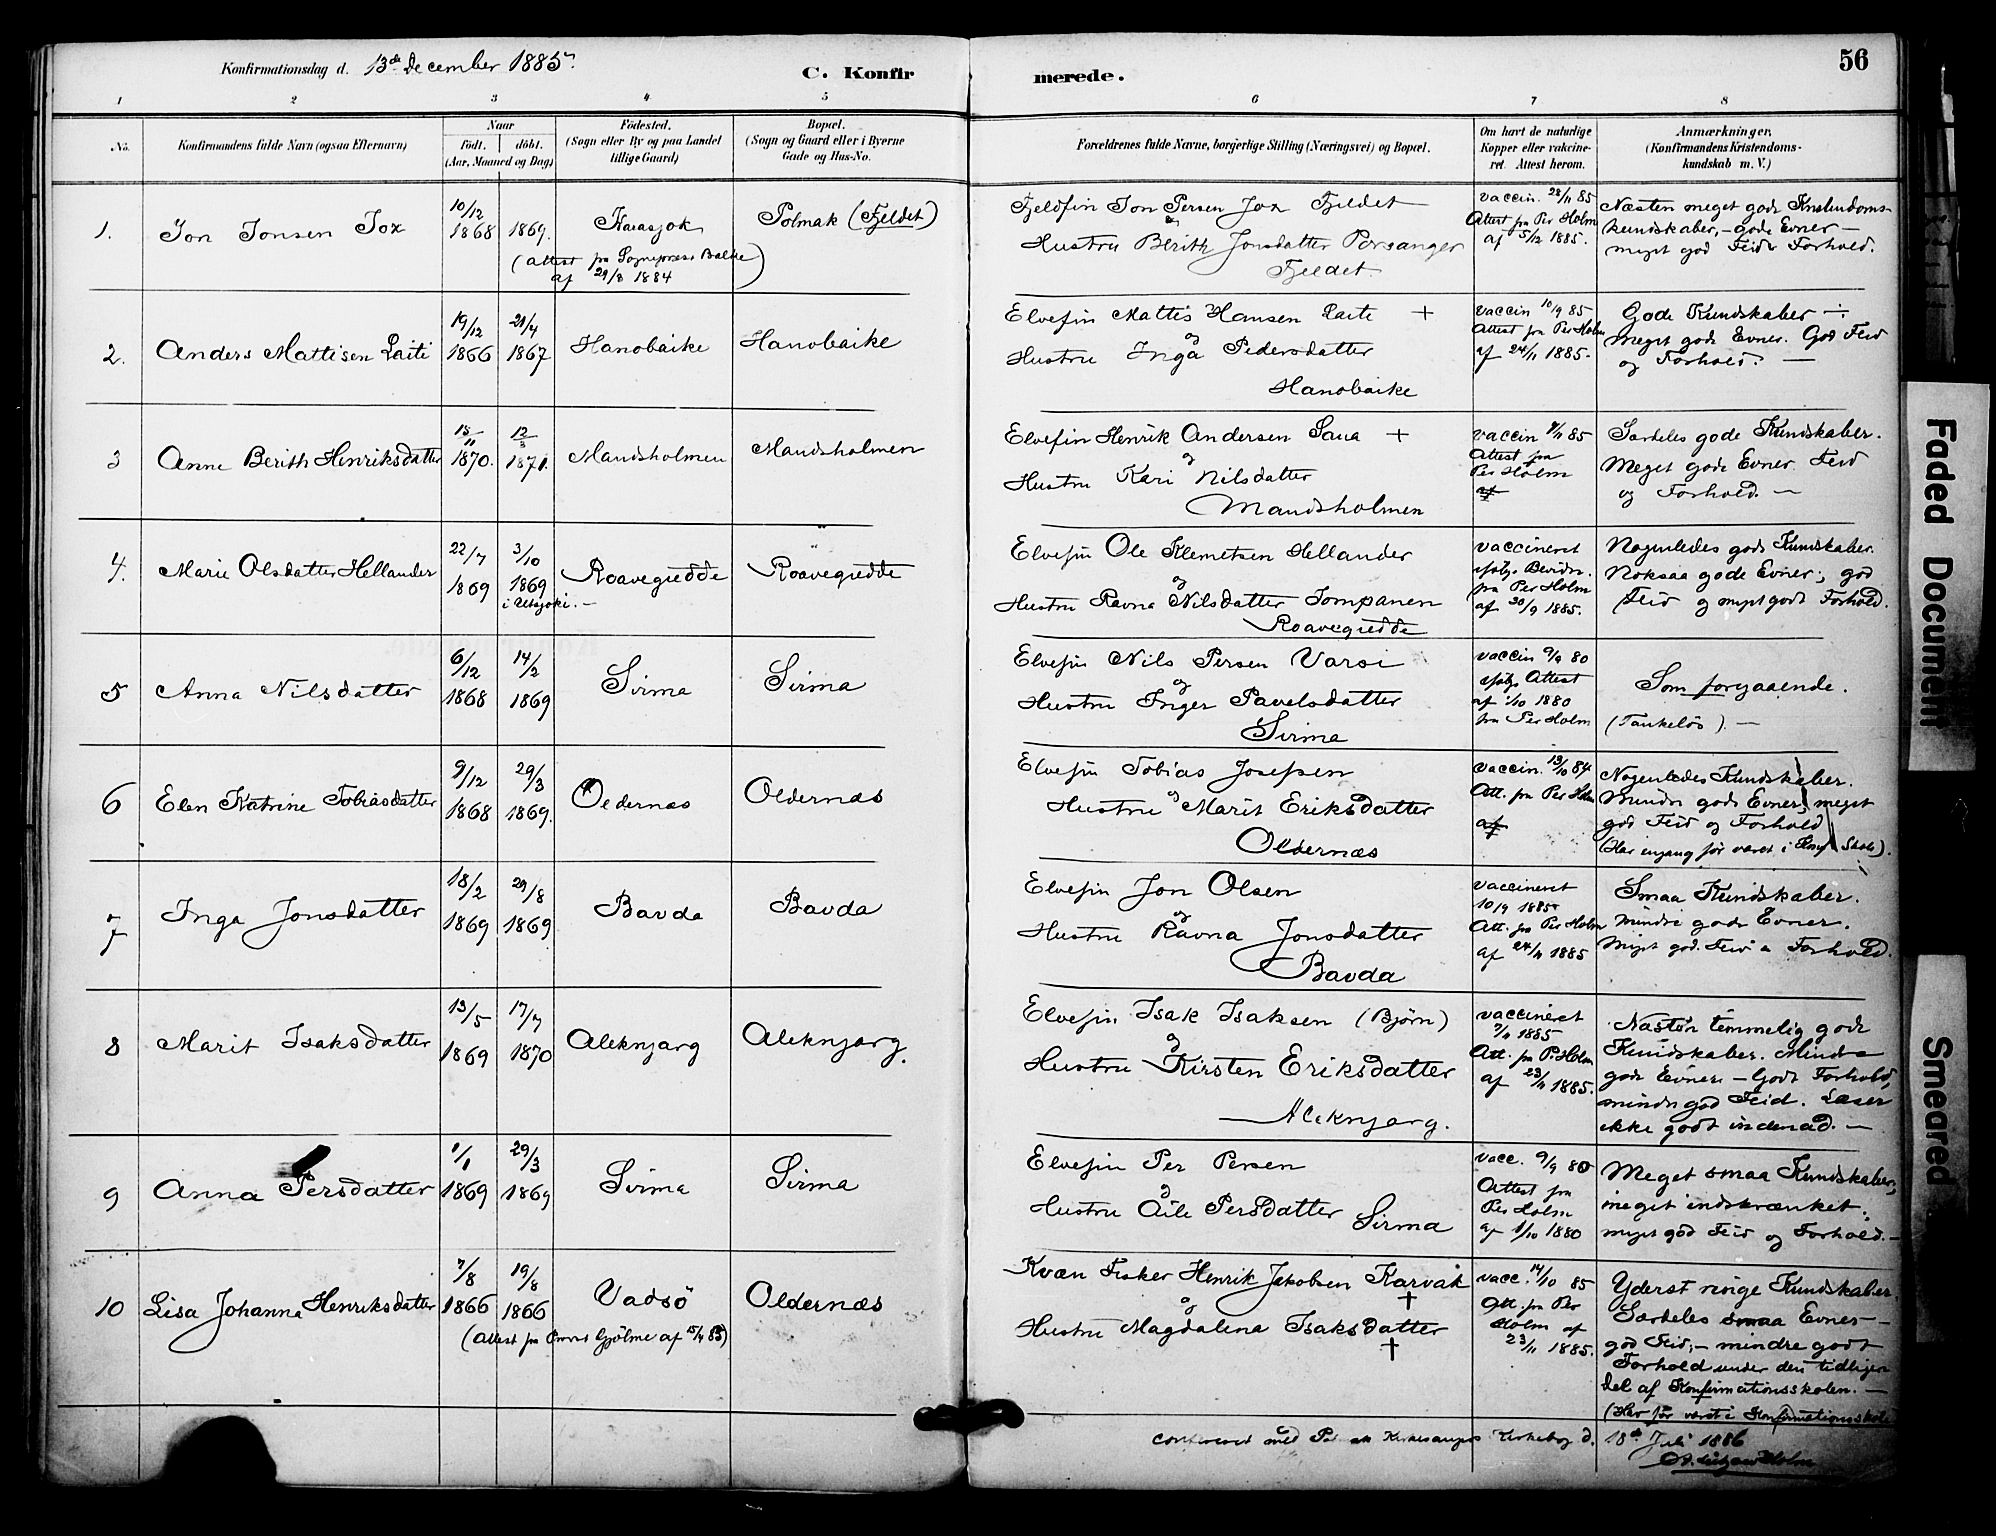 Konfirmationsdag d. 13de December 1885.
C. Konfirmerede.
56
1 2 3 4 5 6 7 8
No.
Konfirmandens fulde Navn (ogsaa Efternavn)
Naar
født. døbt.
(Aar, Maaned og Dag)
Fødested.
(Sogn eller By og paa Landet
tillige Gaard)
Bopæl.
(Sogn og Gaard eller i Byerne
Gade og Hus-No.
Forældrenes fulde Navne, borgerlige Stilling (Næringsvei) og Bopæl.
Om havt de naturlige
Kopper eller vakcine-
ret. Attest herom.
Anmærkninger.
(Konfirmandens Kristendoms-
kundskab m. V.)
1. Jon Jonsen Jox
10/12 1868
1869.
Karasjok
(Attest fra Sognepræst Balke
af 29/8 1884)
Polmak (Fjeldet)
Fjeldfin Jon Persen Jox Fjeldet
&
Hustru Berith Jonsdatter Porsanger
Fjeldet
Vaccin. 28/11 85
Attest fra Per Holm
af 5/12 1885.
Næsten meget gode Kristendoms-
kundskaber, - gode Evner -
meget god Flid & Forhold.
2. Anders Mattisen Laiti
19/12 1866
21/4 1867
Hanobaike
Hanobaike
Elvefin Mattis Hansen Laiti +
og
Hustru Inga Pedersdatter
Hanobaike
Vaccin 10/9 85
Attest fra Per Holm
af 24/11 1885.
Gode Kundskaber -
Meget gode Evner. God Flid
og Forhold. -
3 Anne Berith Henriksdatter
15/11 1870.
12/3 1871.
Mandsholmen
Mandsholmen
Elvefin Henrik Andersen Saua +
og
Hustru Kari Nilsdatter
Mandsholmen
Vaccin 9/11 85
Attest fra
Per Holm
af
Særdeles gode Kundskaber.
Meget gode Evner. Flid
og Forhold. -
4. Marie Olsdatter Hellander
22/7 1869
3/10 1869
i Utsjoki. -
Roavegiedde
Roavegiedde
Elvefin Ole Klemetsen Hellander
og
Hustru Ravna Nilsdatter Jompanen
Roavegiedde
Vaccineret
ifølge Bevidn.
fra Per Holm
af 30/9 1885.
Nogenledes gode Kundskaber.
Noksaa gode Evner; god
Flid og meget godt Forhold.
5 Anna Nilsdatter
6/12 1868
14/2 1869
Sirma
Sirma
Elvefin Nils Persen Varsi
og
Hustru Inger Pavelsdatter
Sirma
Vaccin 9/9 80
ifølge Attest
af 1/10 1880
fra Per Holm
Som foregaaende.
(Tankeløs). -
6 Elen Katrine Tobiasdatter
9/12 1868
29/3 1869.
Oldernæs
Oldernæs
Elvefin Tobias Josefsen
og
Hustru Marit Eriksdatter
Oldernæs
Vaccin. 13/10 84
Att. fra Per Holm
af
Nogenledes Kundskaber.
Mindre gode Evner; meget
god Flid og Forhold
(Har engang før været i Konf Skole).
7 Inga Jonsdatter
18/2 1869
29/8 1869
Bavda
Bavda
Elvefin Jon Olsen
og
Hustru Ravna Jonsdatter
Bavda
Vaccineret
10/9 1885
Att. fra Per Holm
af 24/11 1885
Smaa Kundskaber.
mindre gode Evner.
Meget god. Flid & Forhold.
8 Marit Isaksdatter
13/5 1869
17/7 1870
Aleknjarg
Aleknjarg.
Elvefin Isak Isaksen (Bjørn)
og
Hustru Kirsten Eriksdatter
Aleknjarg.
Vaccineret
9/11 1885
Att. fra P. Holm
af 23/11 1885.
Næsten temmelig gode
Kundskaber. Mindre
gode Evner. - Godt Forhold,
mindre god Flid. Læser
ikke godt indenad. -
9 Anna Persdatter
1/1 1869
29/3 1869
Sirma
Sirma
Elvefin Per Persen
og
Hustru Aile Persdatter Sirma
Vacc. 9/9 80
Attest fra
Per Holm
af 1/10 1880
Meget smaa Kundskaber;
meget indskrænket;
meget god Flid og Forhold. -
10 Lisa Johanna Henriksdatter
7/8 1866
19/8 1866
Vadsø
(Attest fra Provst Gjølme af 15/4 85)
Oldernæs
Kvæn Fisker Henrik Jakobsen Karvak †
og
Hustru Magdalena Isaksdatter †
Vacc. 14/10 85
Att. fra Per
Holm af
23/11 1885.
Yderst ringe Kundskaber
Særdeles smaa Evner -
god Flid; - mindre godt
Forhold under den tidligere
Del af Konfirmationsskolen. -
(Har før været i Konfirmationsskole
Confereret med Kirkesangers Kirkebog d. 18de Juli 1886
Holm
Faded Document
Smeared